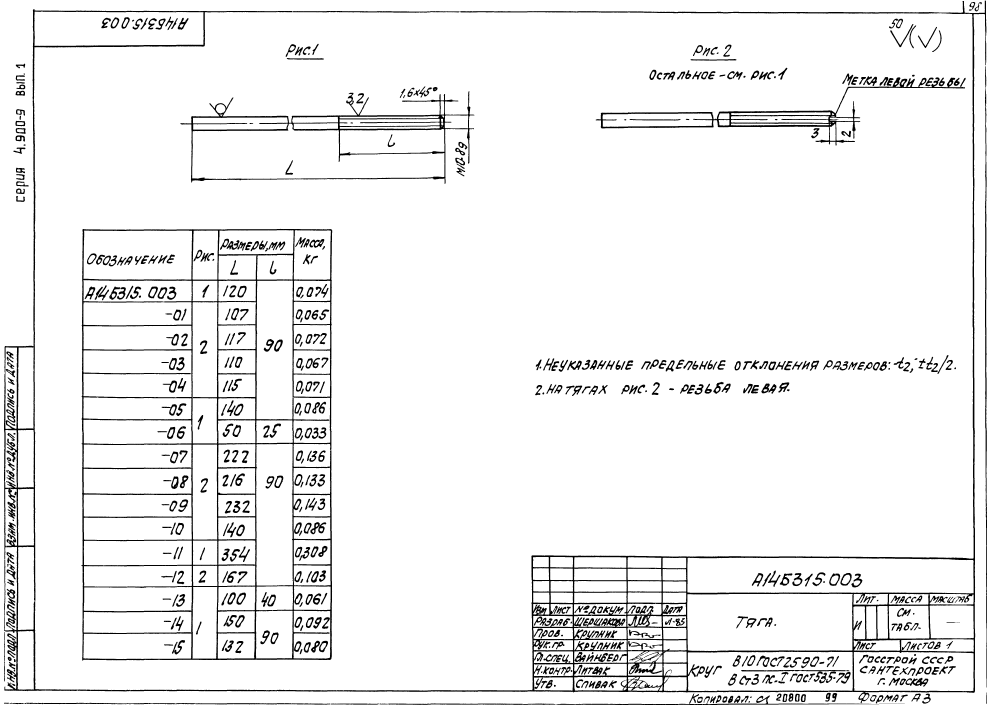 98
А14Б315.003
серия 4.900-9 вып. 1
Рис.1
Рис. 2
Остальное - см. рис. 1
Метка левой резьбы
50
3,2
1,6×45°
М10-8g
l
L
3
2
Обозначение Рис. Размеры, мм Масса, кг
L l
А14Б315.003 1 120 90 0,074
-01 2 107 0,065
-02 117 0,072
-03 110 0,067
-04 115 0,071
-05 1 140 0,086
-06 50 25 0,033
-07 2 222 90 0,136
-08 216 0,133
-09 232 0,143
-10 140 0,086
-11 1 354 0,308
-12 2 167 0,103
-13 1 100 40 0,061
-14 150 90 0,092
-15 132 0,080
1. Неуказанные предельные отклонения размеров: -t2; ±t2/2.
2. На тягах рис. 2 - резьба левая.
Инв. № подл. Подпись и дата Взам. инв. № Инв. № дубл. Подпись и дата
А14Б315.003
Изм Лист № докум. Подп. Дата
Разраб. Шершакова VI-85
Пров. Крупник
Рук. гр. Крупник
Гл. спец. Вайнберг
Н. контр. Литвак
Утв. Спивак
Тяга.
Лит. Масса Масштаб
И См. табл. —
Лист Листов 1
Круг В10 ГОСТ 2590-71
В Ст3 пс-I ГОСТ 535-79
Госстрой СССР
Сантехпроект
г. Москва
Копировал: 20800 99 Формат А3